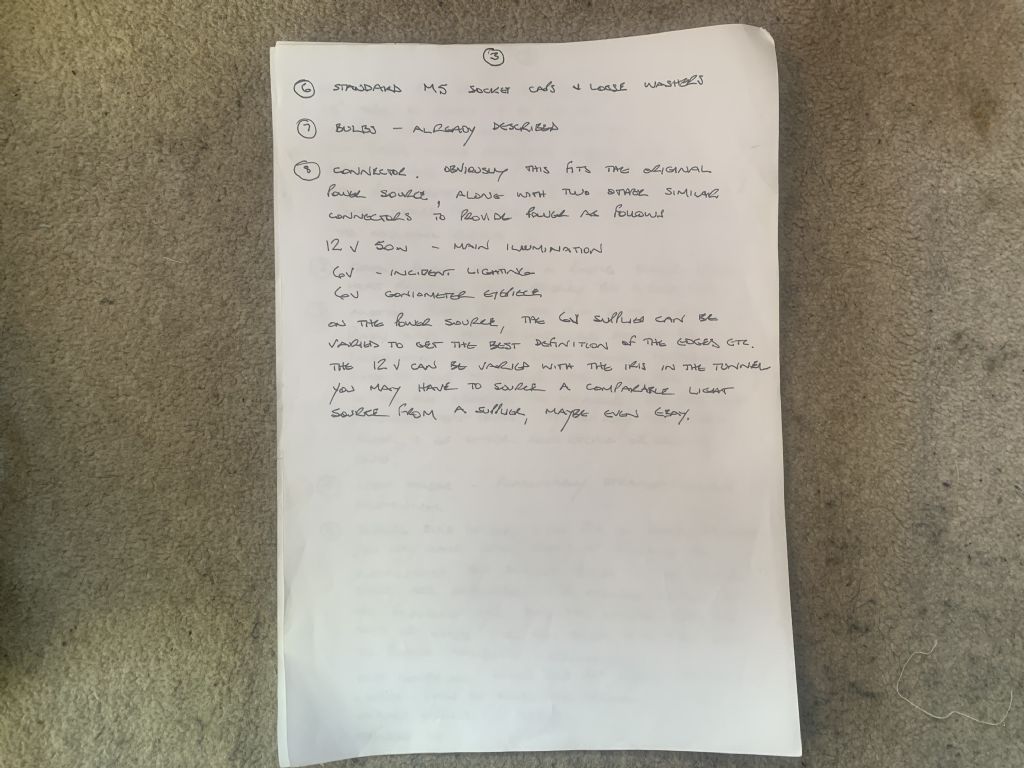 3
6 STANDARD M5 SOCKET CAPS & LOOSE WASHERS
7 BULBS - ALREADY DESCRIBED
8 CONNECTOR. OBVIOUSLY THIS FITS THE ORIGINAL
POWER SOURCE, ALONG WITH TWO OTHER SIMILAR
CONNECTORS TO PROVIDE POWER AS FOLLOWS
12 V 50W - MAIN ILLUMINATION
6V - INCIDENT LIGHTING
6V GONIOMETER EYEPIECE
ON THE POWER SOURCE, THE 6V SUPPLIES CAN BE
VARIED TO GET THE BEST DEFINITION OF THE EDGES ETC.
THE 12 V CAN BE VARIED WITH THE IRIS IN THE TUNNEL
YOU MAY HAVE TO SOURCE A COMPARABLE LIGHT
SOURCE FROM A SUPPLIER, MAYBE EVEN EBAY.